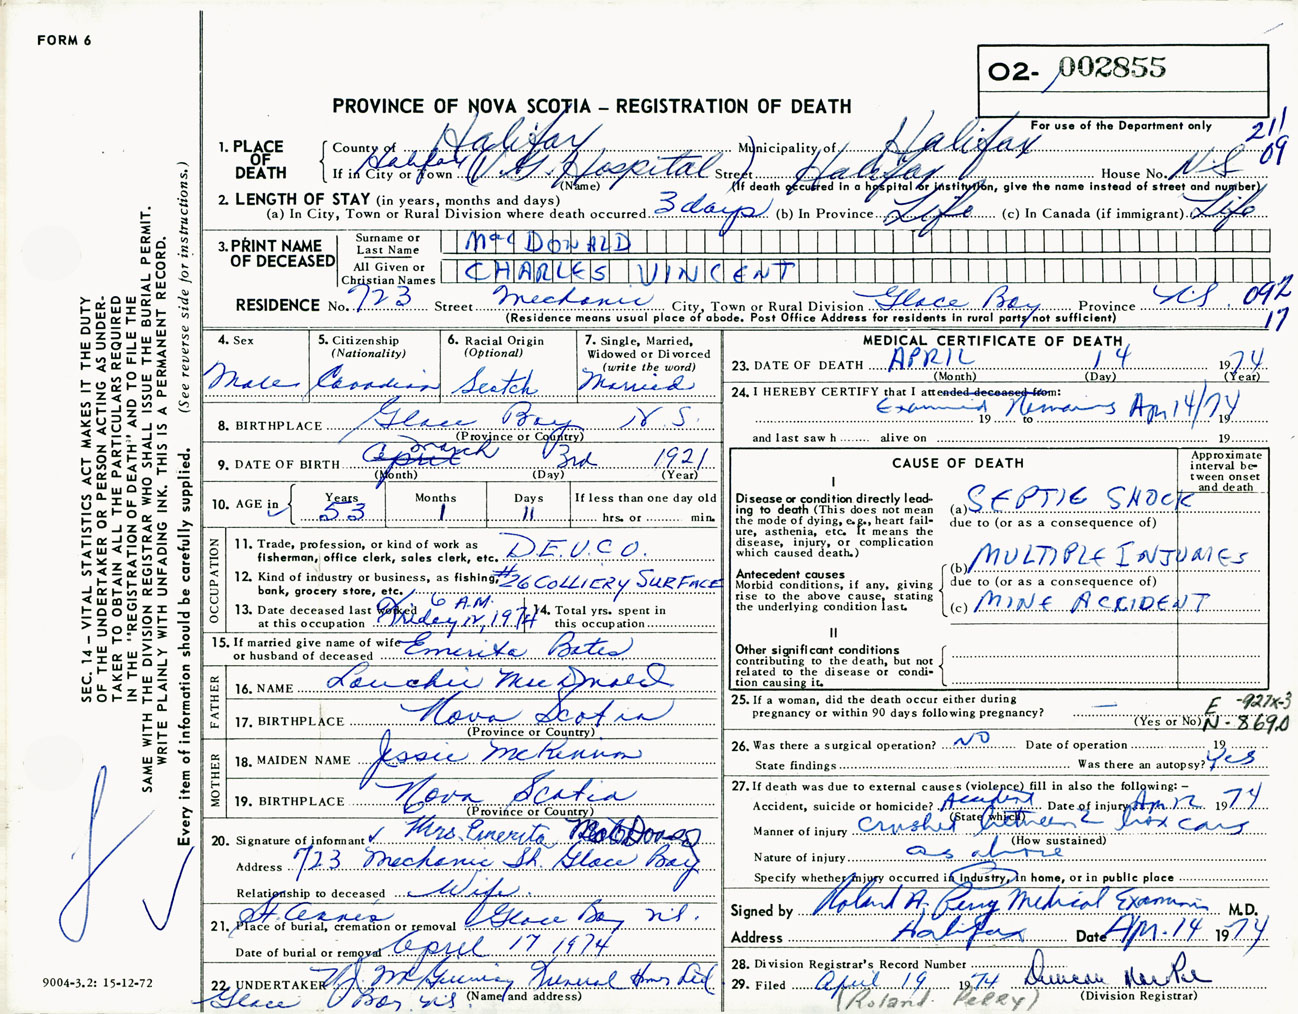 FORM 6
O2- 002855
PROVINCE OF NOVA SCOTIA – REGISTRATION OF DEATH
For use of the Department only
211
09
1. PLACE OF DEATH
County of Halifax Municipality of Halifax
If in City or Town Halifax (V.G. Hospital) Street Halifax House No. N.S
(Name) (If death occurred in a hospital or institution, give the name instead of street and number)
2. LENGTH OF STAY (in years, months and days)
(a) In City, Town or Rural Division where death occurred 3 days (b) In Province Life (c) In Canada (if immigrant) Life
3. PRINT NAME OF DECEASED
Surname or Last Name MacDONALD
All Given or Christian Names CHARLES VINCENT
RESIDENCE No. 723 Street Mechanic City, Town or Rural Division Glace Bay Province N.S. 092
17
(Residence means usual place of abode. Post Office Address for residents in rural parts not sufficient)
4. Sex
Male
5. Citizenship
(Nationality)
Canadian
6. Racial Origin
(Optional)
Scotch
7. Single, Married,
Widowed or Divorced
(write the word)
Married
8. BIRTHPLACE Glace Bay N.S.
(Province or Country)
9. DATE OF BIRTH April March 3rd 1921
(Month) (Day) (Year)
10. AGE in
Years Months Days If less than one day old
53 1 11 hrs. or min.
OCCUPATION
11. Trade, profession, or kind of work as
fisherman, office clerk, sales clerk, etc. D.E.V.C.O.
12. Kind of industry or business, as fishing,
bank, grocery store, etc. #26 COLLIERY SURFACE
13. Date deceased last worked 6 A.M.
at this occupation Friday 12, 1974
14. Total yrs. spent in
this occupation
15. If married give name of wife
or husband of deceased Emerita Bates
FATHER
16. NAME Lauchie MacDonald
17. BIRTHPLACE Nova Scotia
(Province or Country)
MOTHER
18. MAIDEN NAME Jessie McKinnon
19. BIRTHPLACE Nova Scotia
(Province or Country)
20. Signature of informant Mrs. Emerita
Address 723 Mechanic St. Glace Bay
Relationship to deceased Wife.
21. Place of burial, cremation or removal St. Annes Glace Bay N.S.
Date of burial or removal April 17 1974
22. UNDERTAKER Funeral Home Ltd
(Name and address)
Glace Bay N.S.
MEDICAL CERTIFICATE OF DEATH
23. DATE OF DEATH APRIL 14 1974
(Month) (Day) (Year)
24. I HEREBY CERTIFY that I attended deceased from:
Examined Remains Apr 14/74
19 to 19
and last saw h alive on 19
CAUSE OF DEATH
Approximate interval between onset and death
I
Disease or condition directly leading to death (This does not mean the mode of dying, e.g., heart failure, asthenia, etc. It means the disease, injury, or complication which caused death.)
(a) SEPTIC SHOCK
due to (or as a consequence of)
Antecedent causes
Morbid conditions, if any, giving rise to the above cause, stating the underlying condition last.
(b) MULTIPLE INJURIES
due to (or as a consequence of)
(c) MINE ACCIDENT
II
Other significant conditions
contributing to the death, but not related to the disease or condition causing it.
25. If a woman, did the death occur either during
pregnancy or within 90 days following pregnancy? —
(Yes or No)
E -927X-3
N - 869.0
26. Was there a surgical operation? NO Date of operation 19
State findings Was there an autopsy? Yes
27. If death was due to external causes (violence) fill in also the following: –
Accident, suicide or homicide? Accident Date of injury Apr 12 1974
(State which)
Manner of injury crushed between 2 box cars
(How sustained)
Nature of injury as above
Specify whether injury occurred in industry, in home, or in public place
Signed by Roland A. Perry Medical Examiner M.D.
Address Halifax Date Apr. 14 1974
28. Division Registrar's Record Number
29. Filed April 19 1974 Duncan
(Division Registrar)
(Roland PERRY)
SEC. 14 – VITAL STATISTICS ACT MAKES IT THE DUTY
OF THE UNDERTAKER OR PERSON ACTING AS UNDER-
TAKER TO OBTAIN ALL THE PARTICULARS REQUIRED
IN THE "REGISTRATION OF DEATH" AND TO FILE THE
SAME WITH THE DIVISION REGISTRAR WHO SHALL ISSUE THE BURIAL PERMIT.
WRITE PLAINLY WITH UNFADING INK. THIS IS A PERMANENT RECORD.
Every item of information should be carefully supplied. (See reverse side for instructions.)
9004-3.2: 15-12-72